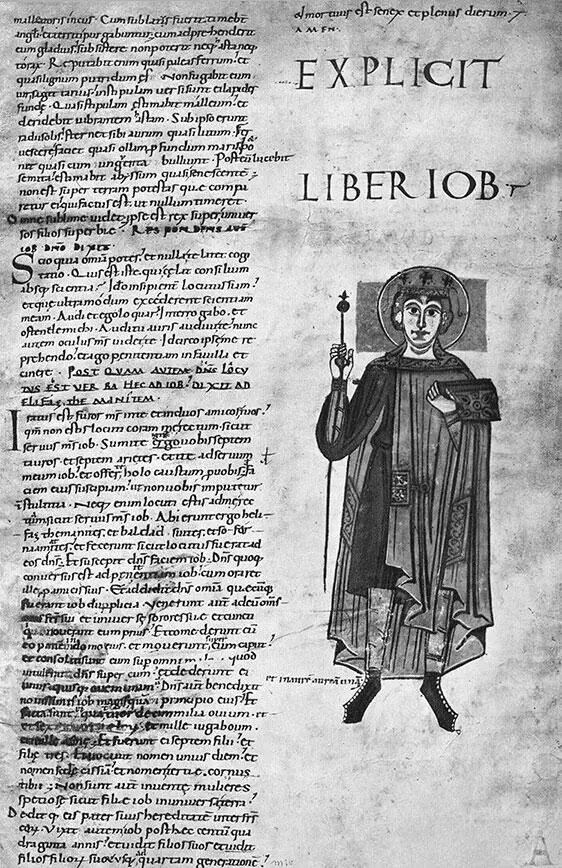 malleatoris incus. Cum sublatus fuerit timebunt
angli et territi purgabuntur. cum adprehenderit
eum gladius. subsistere non poterit neq; asta neq;
torax. Reputabit enim quasi paleas ferrum. et
quasi lignum putridum es. Non fugabit eum
vir sagittarius. in stipulam versi sunt ei lapides
funde. Quasi stipulam estimabit malleum. et
deridebit vibrantem astam. Sub ipso erunt
radii solis.
fervescere faciet quasi ollam profundum maris.
quasi cum ungenta bulliunt. Post eum lucebit
semita. estimabit abyssum quasi senescente.
non est super terram potestas que compa
retur ei qui factus est ut nullum timeret.
Omne sublime videt. ipse est rex super univer
sos filios superbie. RESPONDENS AUT
IOB DNO DIXIT.
Scio quia omnia potes. et nulla te latet cogi
tatio. Quis est iste qui celat consilium
absq; scientia? Ideo insipienter locutus sum
et que ultra modum excederent scientiam
meam. Audi et ego loquar. Interrogabo. et
ostende michi. Auditu auris audivi te. nunc
autem oculus ms videt te. Idcirco ipse me re
prehendo. et ago penitentiam in favilla et
cinere. POST QUAM AUTEM DNS LOCU
TUS EST VERBA HEC AD IOB. DIXIT AD
ELIFAZ THEMANITEM.
Iratus est furor ms in te et in duos amicos tuos.
qm non estis locuti coram me rectum. sicut
servus ms iob. Sumite ergo vobis septem
tauros. et septem arietes. et ite ad servum
meum iob. et offerte holocaustum pro vobis.
faciem eius suscipiam. ut non vobis imputetur
stultitia. Neq; enim locuti estis ad me recte
sicut servus ms iob. Abierunt ergo heli
faz themanites. et baldad suites. et sofar
naamatites. et fecerunt sicut locutus fuerat ad
eos dns. Et suscepit dns faciem iob. Dns quoq;
conversus est ad penitentiam iob. cum oraret
ille pro amicis suis. Et addidit dns omnia quecuq;
fuerant iob dupplicia. Venerunt aut ad eum oms
fratres sui et universe sorores sue. et cuncti
qui noverant eum prius. Et comederunt cum
eo panem in domo eius. et moverunt super eum caput.
et consolati sunt eum super omni quod
intulerat dns super eum. et dederunt ei
unusquisque ovem unam. Dns aut benedixit
novissimis iob magis quam principio eius. Et
facta sunt quatuordecim milia ovium. et
et mille iugaboum.
et mille asine. Et fuerunt ei septem filii. et
filie tres. Et vocavit nomen unius diem. et
nomen secunde cassia. et nomen tertie cornus
tibii. Non sunt aut invente mulieres
speciose sicut filie iob in universa terra.
Dedit q; eis pater suus hereditatem inter frs
eorum. Vixit autem iob post hec centum qua
draginta annis. et vidit filios suos et
filios filiorum suorum usq; quartam generatione.
et mortuus est senex et plenus dierum.
AMEN.
EXPLICIT
LIBER IOB
et inaurem auream unam.